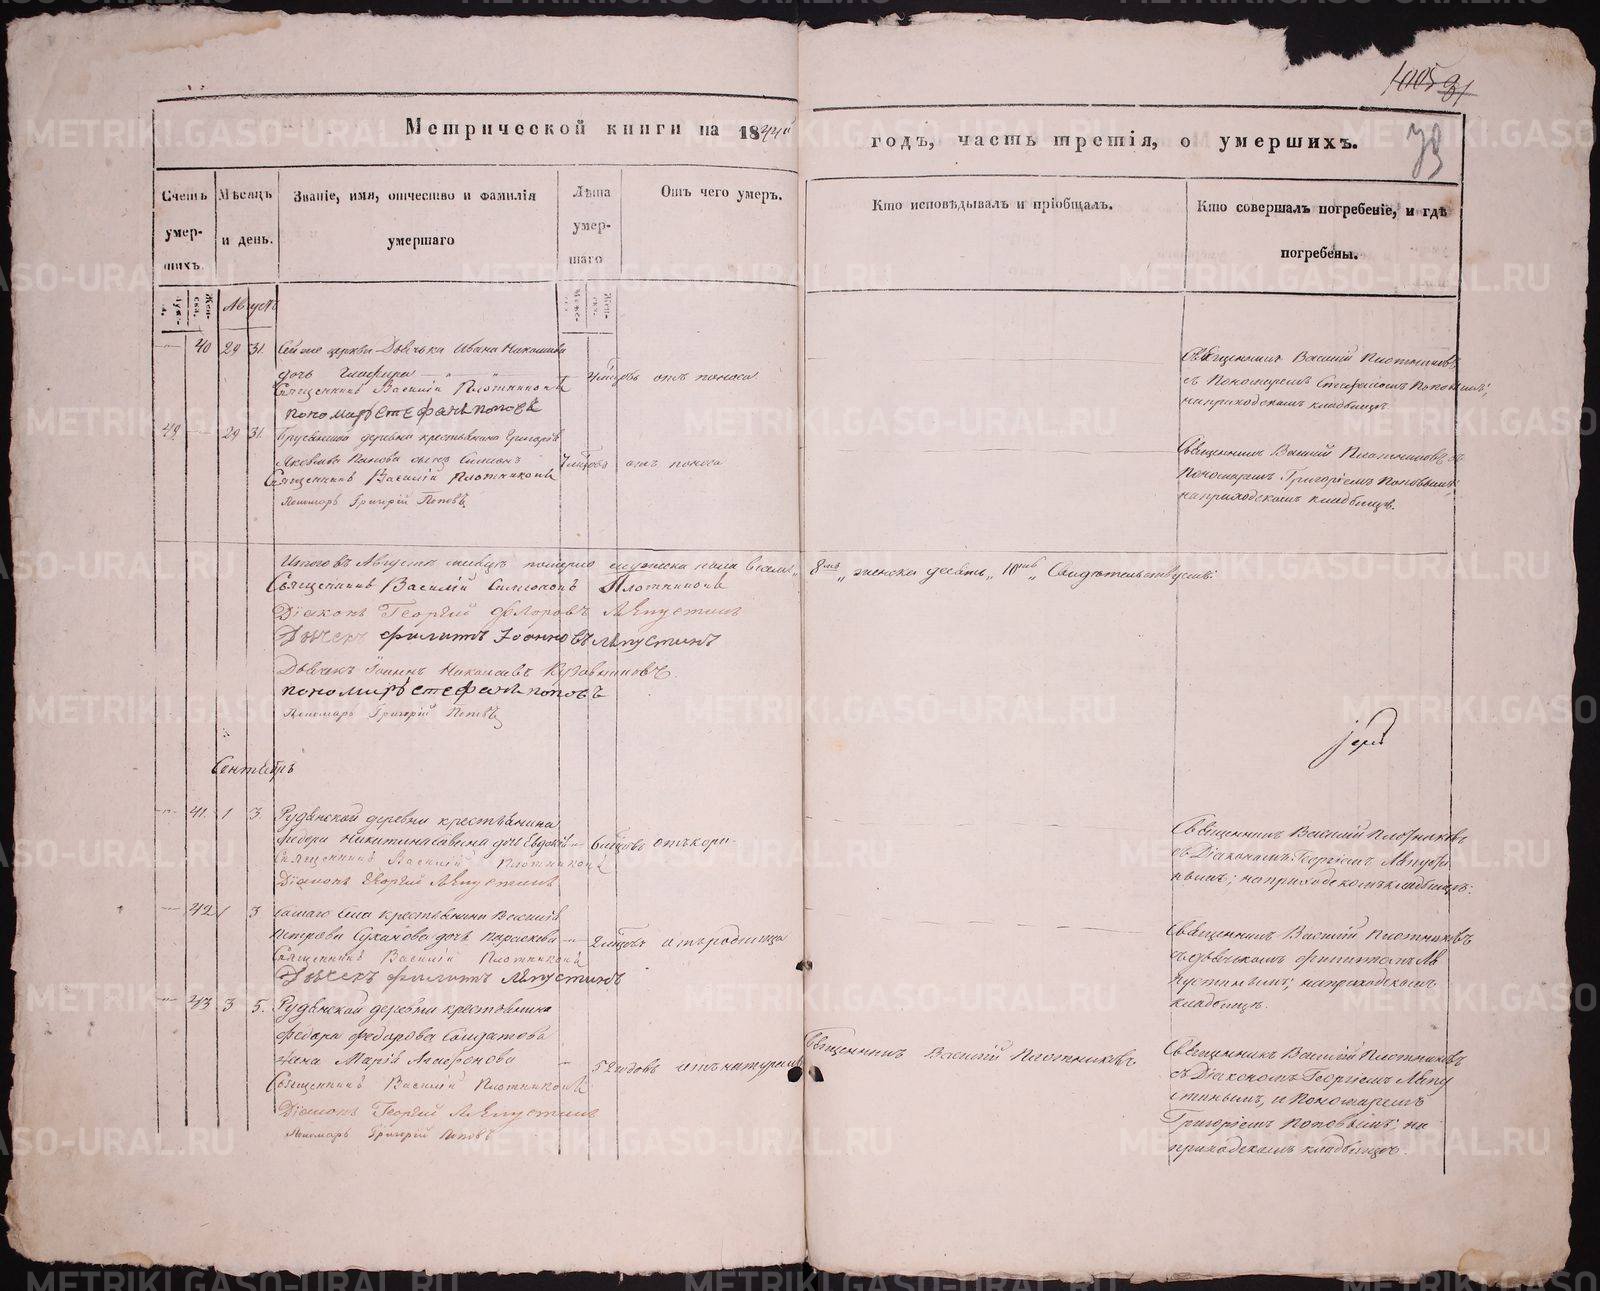 1005 91
73
Метрической книги на 1844й годъ, часть третія, о умершихъ.
Счетъ умер-шихъ.
Мѣсяцъ и день.
Званіе, имя, отчество и фамилія умершаго
Лѣта умер-шаго
Отъ чего умеръ.
Кто исповѣдывалъ и пріобщалъ.
Кто совершалъ погребеніе, и гдѣ погребены.
Августъ
40 29 31. Сей же церкви Дьячька Ивана Николаева
дочь Глафира 4 мѣсяцовъ отъ поноса.
Священникъ Василій Плотниковъ
пономарь стефанъ поповъ
Священникъ Василій Плотниковъ,
съ Пономаремъ Стефаномъ Поповымъ;
на приходскомъ кладбищѣ.
49 29 31. деревни крестьянина Григорія
Яковлева Панова сынъ Симеонъ отъ поноса
Священникъ Василій Плотниковъ
Пономарь Григорій Поповъ
Священникъ Василій Плотниковъ съ
Пономаремъ Григоріемъ Поповымъ;
на приходскомъ кладбищѣ.
Итого въ Августѣ мѣсяцѣ померло мужеска пола восемь „ 8мь „ женска десять „ 10ть „ Свидѣтельствуемъ:
Священникъ Василій Симеоновъ Плотниковъ
Діаконъ Георгій Ѳедоровъ Ляпустинъ
Дьячекъ филиппъ Іоанновъ ляпустинъ
Дьячекъ Іоаннъ Николаевъ
пономарь стефанъ поповъ
Пономарь Григорій Поповъ
Сентябрь
41. 1 3. Рудянской деревни крестьянина
федора Никитина дочь Евдокія 6 мѣсяцовъ отъ кори
Священникъ Василій Плотниковъ
Діаконъ Георгій Ляпустинъ
Священникъ Василій Плотниковъ
съ Діакономъ Георгіемъ Ляпусти
нымъ; на приходскомъ кладбищѣ.
42 1 3 самаго Села крестьянина Василія
Петрова Суханова дочь Параскева 2 мѣсяцовъ отъ родимца
Священникъ Василій Плотниковъ
Дьячекъ филиппъ ляпустинъ
Священникъ Василій Плотниковъ
съ дьячькомъ филиппомъ Ля
пустинымъ; на приходскомъ
кладбищѣ.
43 3 5. Рудянской деревни крестьянина
федора федорова
жена Марія Агафонова 52 годовъ отъ натуральной
Священникъ Василій Плотниковъ
Діаконъ Георгій Ляпустинъ
Пономарь Григорій Поповъ
Священникъ Василій Плотниковъ
Священникъ Василій Плотниковъ
съ Діакономъ Георгіемъ Ляпу
стинымъ, и Пономаремъ
Григоріемъ Поповымъ; на
приходскомъ кладбищѣ.
METRIKI.GASO-URAL.RU